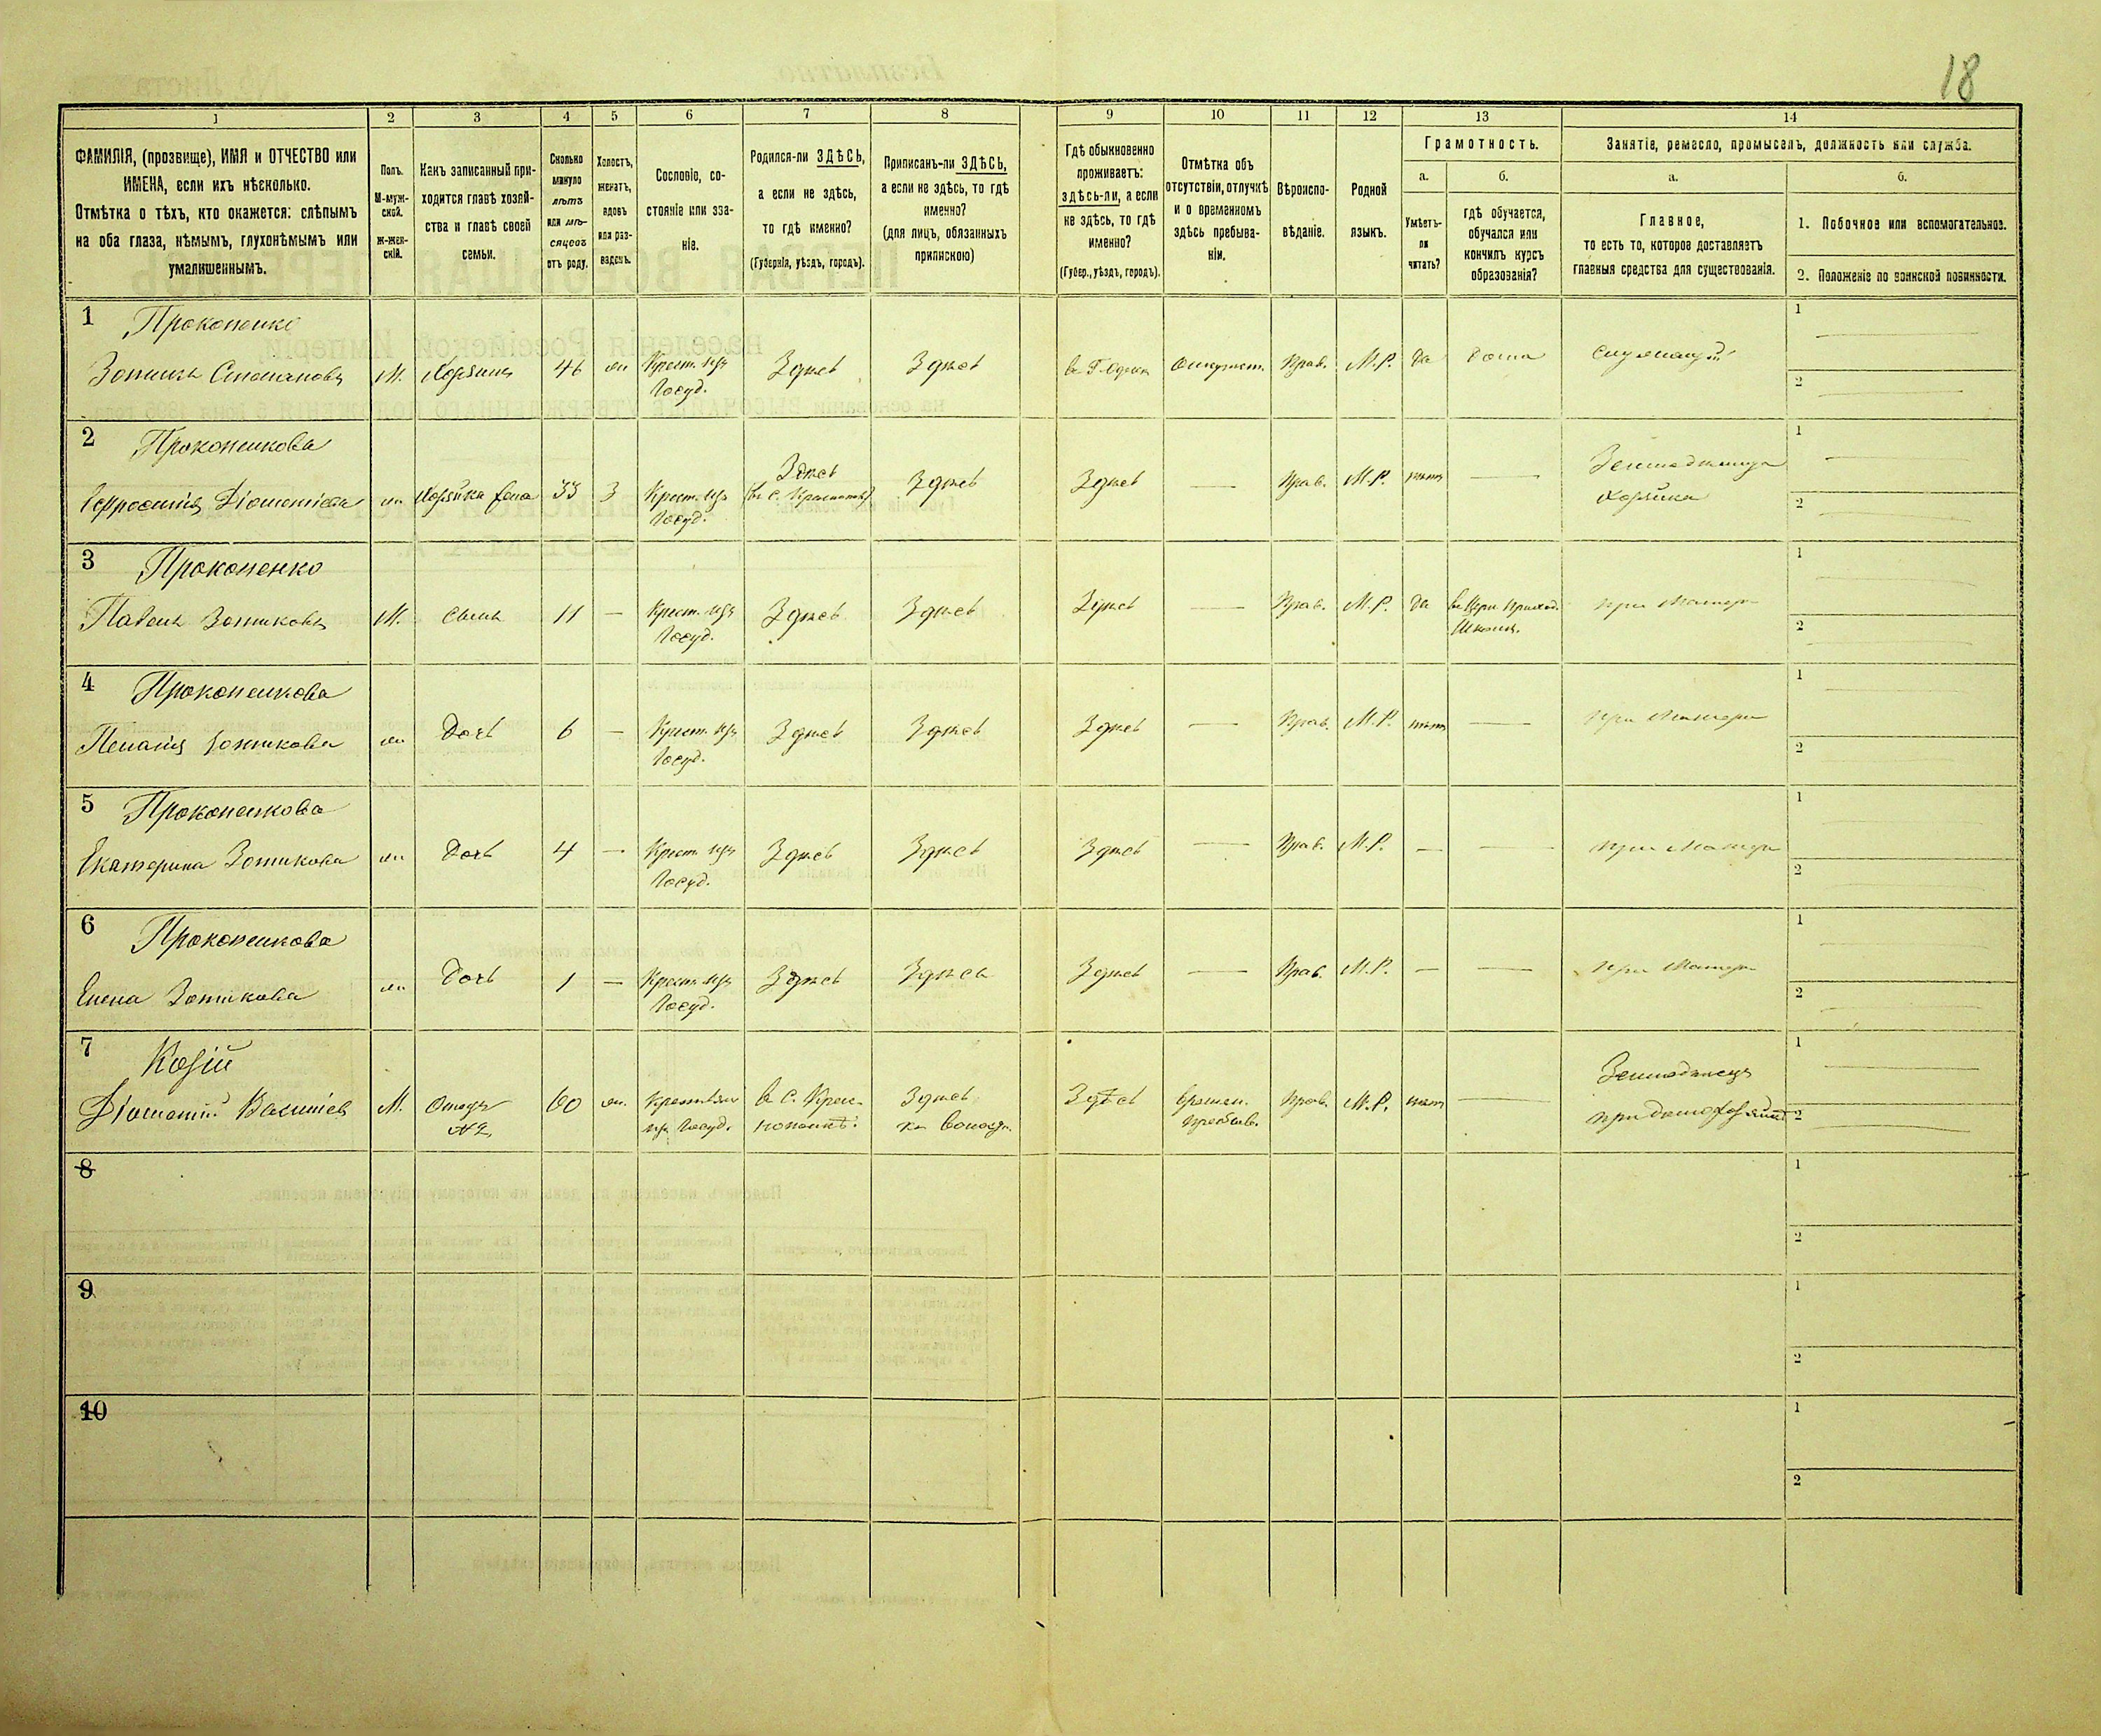 18
1 2 3 4 5 6 7 8 9 10 11 12 13 14
ФАМИЛІЯ, (прозвище), ИМЯ и ОТЧЕСТВО или
ИМЕНА, если ихъ нѣсколько.
Отмѣтка о тѣхъ, кто окажется: слѣпымъ
на оба глаза, нѣмымъ, глухонѣмымъ или
умалишеннымъ.
Полъ.
М-муж-
ской.
Ж-жен-
скій.
Какъ записанный при-
ходится главѣ хозяй-
ства и главѣ своей
семьи.
Сколько
минуло
лѣтъ
или мѣ-
сяцевъ
отъ роду.
Холостъ,
женатъ,
вдовъ
или раз-
веденъ.
Сословіе, со-
стояніе или зва-
ніе.
Родился-ли ЗДѢСЬ,
а если не здѣсь,
то гдѣ именно?
(Губернія, уѣздъ, городъ).
Приписанъ-ли ЗДѢСЬ,
а если не здѣсь, то гдѣ
именно?
(для лицъ, обязанныхъ
припискою)
Гдѣ обыкновенно
проживаетъ:
здѣсь-ли, а если
не здѣсь, то гдѣ
именно?
(Губер., уѣздъ, городъ).
Отмѣтка объ
отсутствіи, отлучкѣ
и о временномъ
здѣсь пребыва-
ніи.
Вѣроиспо-
вѣданіе.
Родной
языкъ.
Грамотность.
а.
Умѣетъ-
ли
читать?
б.
гдѣ обучается,
обучался или
кончилъ курсъ
образованія?
Занятіе, ремесло, промыселъ, должность или служба.
а.
Главное,
то есть то, которое доставляетъ
главныя средства для существованія.
б.
1. Побочное или вспомогательное.
2. Положеніе по воинской повинности.
1 Прокопенко
Зотикъ Степановъ М. Хозяинъ 46 ж Крест. изъ Здѣсь Здѣсь Прав. М.Р. да дома
Госуд.
1
2
2 Прокопенкова
Евфросинія Діомитіева ж Хозяйка жена 33 З Крест. изъ Здѣсь Здѣсь Здѣсь — Прав. М.Р. нѣтъ — Земледѣлица
Госуд.
хозяйка
1
2
3 Прокопенко
Павелъ Зотиковъ М. Сынъ 11 — Крест. изъ Здѣсь Здѣсь Здѣсь — Прав. М.Р. да въ Церк. Приход. при Матери
Госуд. Школѣ.
1
2
4 Прокопенкова
Пелагія Зотикова ж Дочь 6 — Крест. изъ Здѣсь Здѣсь Здѣсь — Прав. М.Р. нѣтъ — при Матери
Госуд.
1
2
5 Прокопенкова
Екатерина Зотикова ж Дочь 4 — Крест. изъ Здѣсь Здѣсь Здѣсь — Прав. М.Р. — — при Матери
Госуд.
1
2
6 Прокопенкова
Елена Зотикова ж Дочь 1 — Крест. изъ Здѣсь Здѣсь Здѣсь — Прав. М.Р. — — при Матери
Госуд.
1
2
7 Козій
М. Отецъ 60 ж. въ с. Здѣсь Здѣсь времен. Прав. М.Р. нѣтъ — Земледѣлецъ
№2 изъ Госуд. пребыв.
1
2
8
1
2
9
1
2
10
1
2